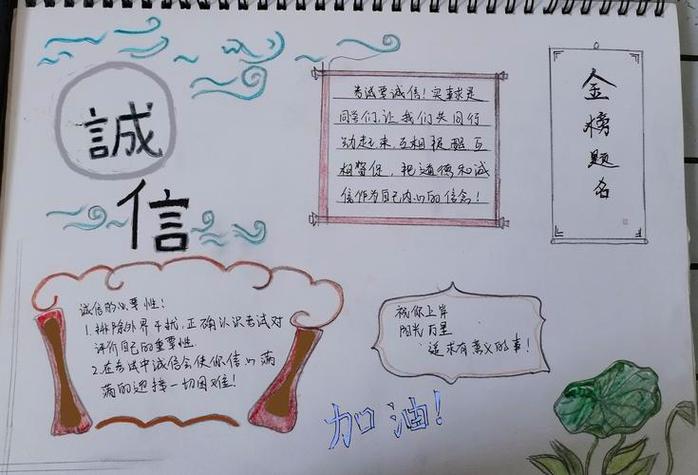 誠
信
考试要诚信!实事求是
同学们,让我们共同行
动起来互相提醒互
相督促,把道德和诚
信作为自己内心的信念!
金榜题名
诚信的必要性!
1.排除外界干扰,正确认识考试对
评价自己的重要性.
2.在考试中诚信会使你信心满
满的迎接一切困难!
祝你上岸
阳光万里
追求有意义的事!
加油!